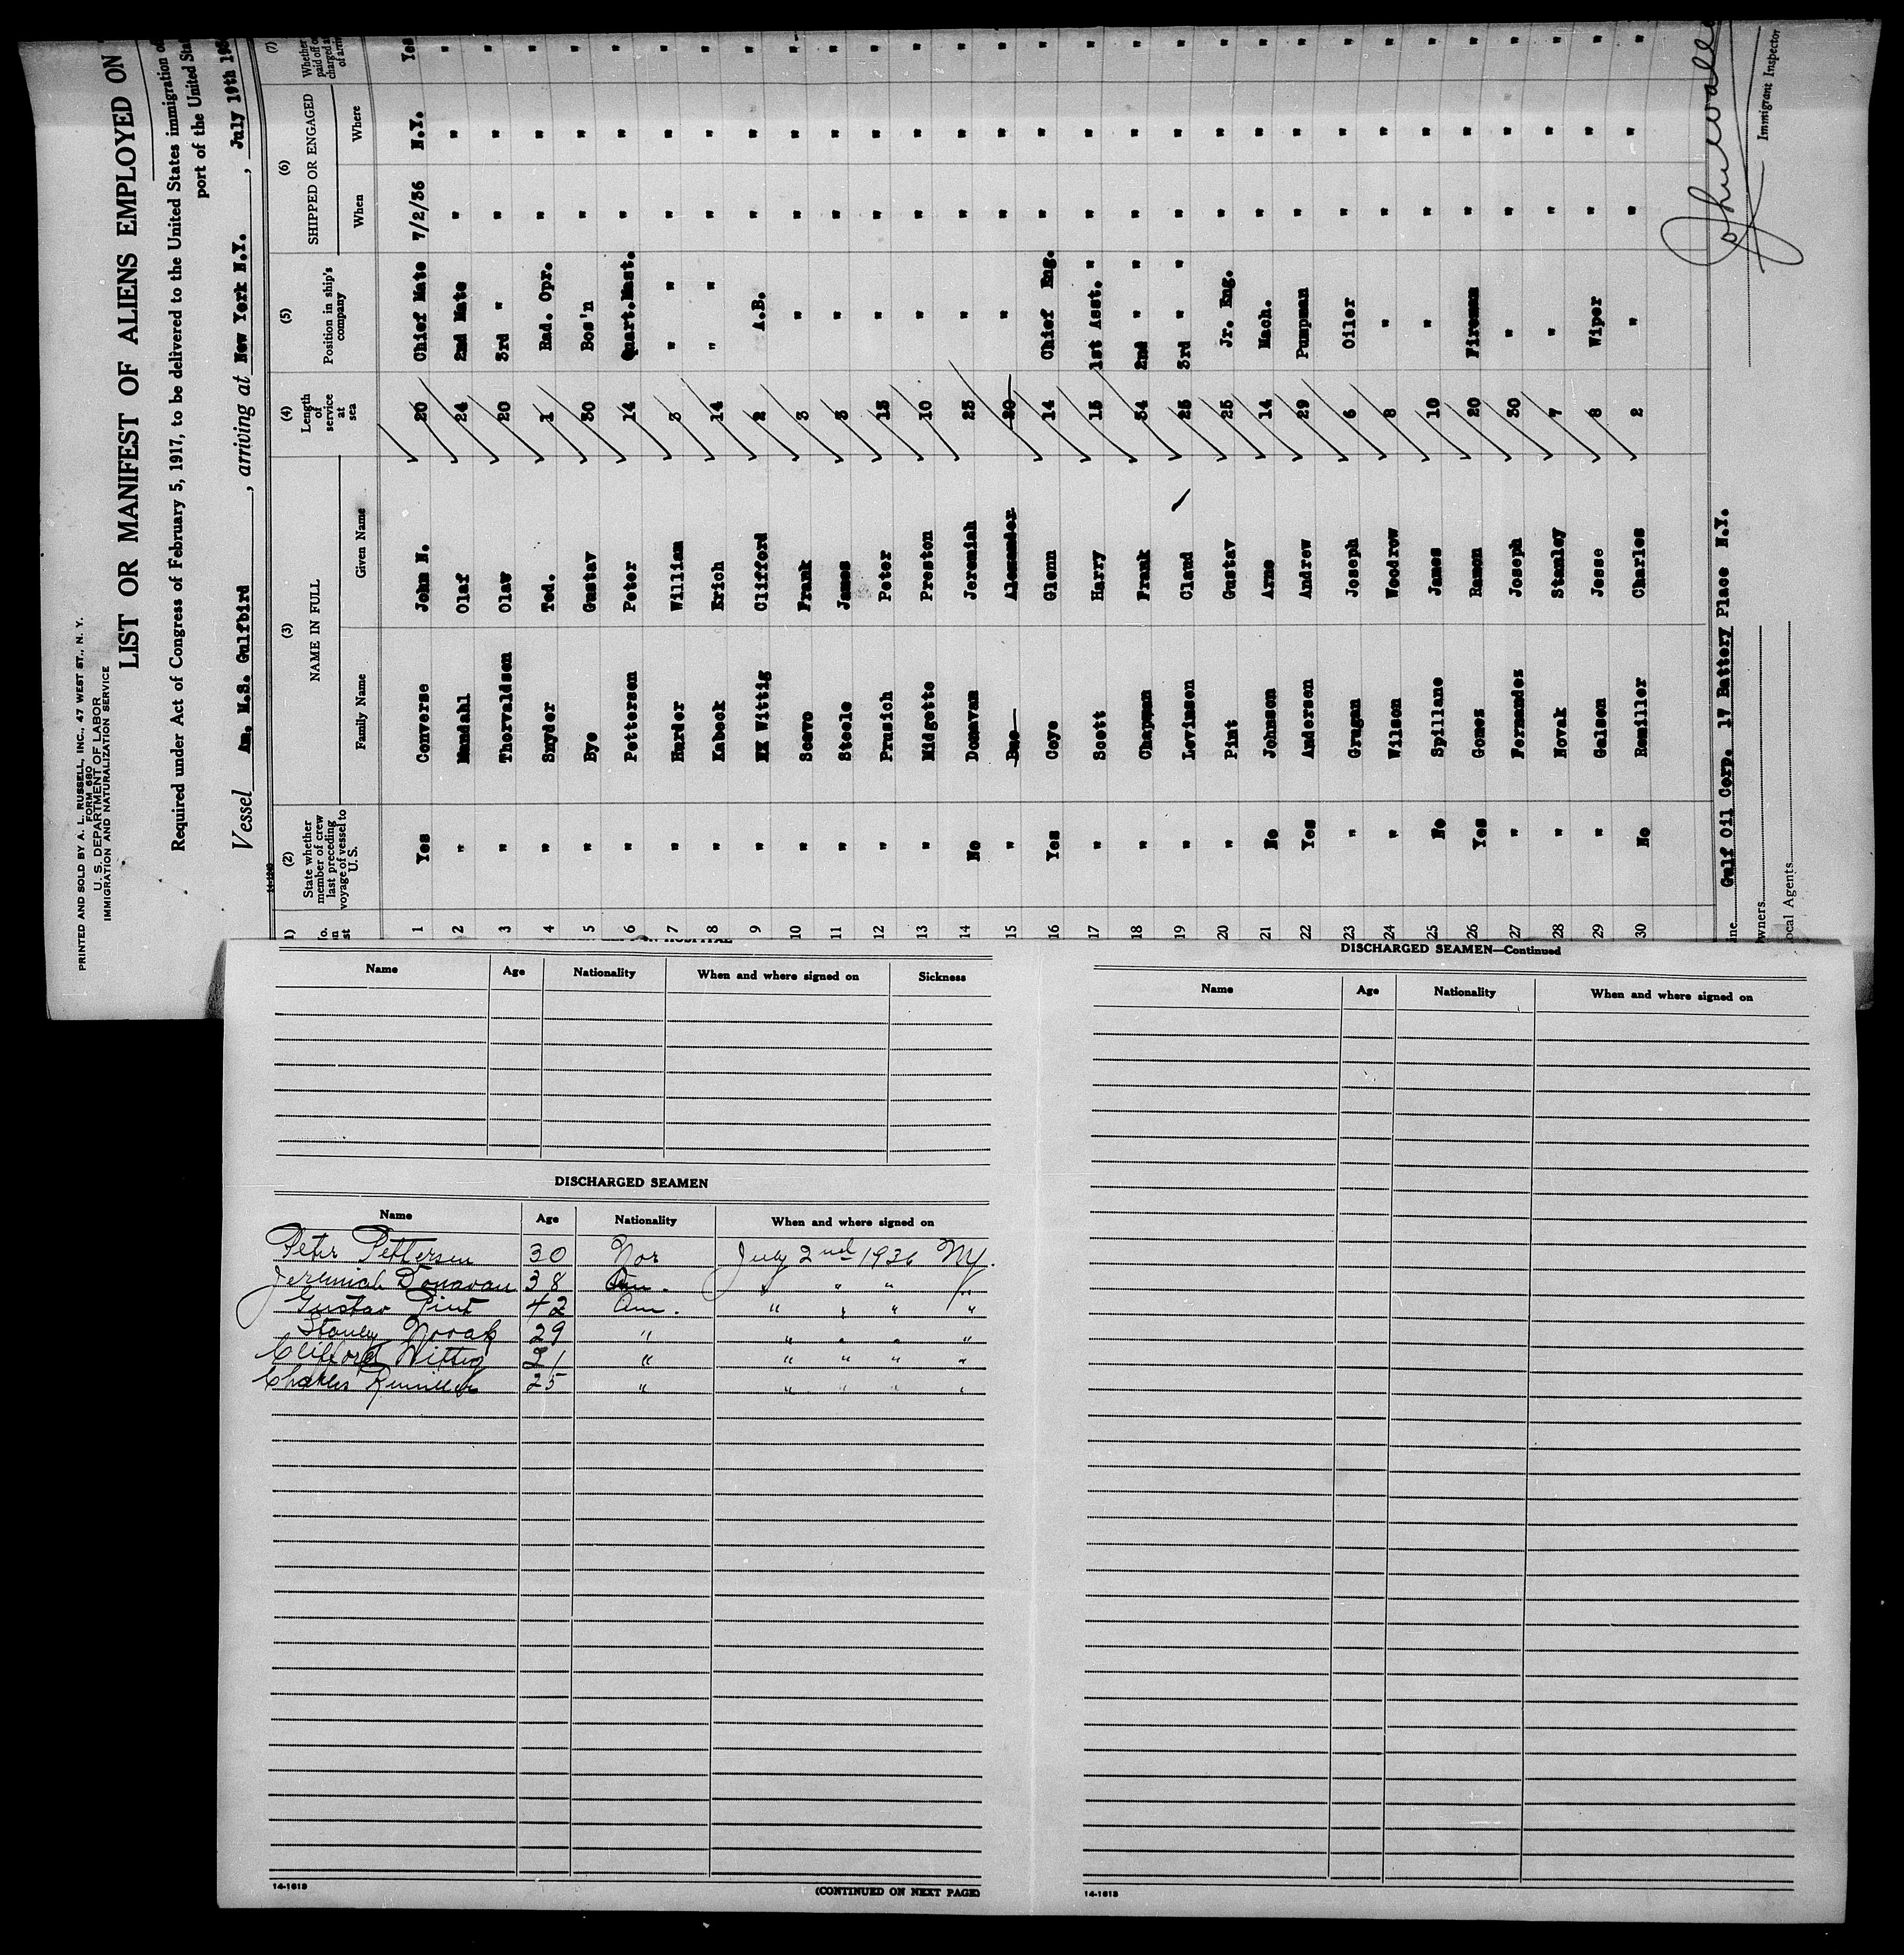 PRINTED AND SOLD BY A. L. RUSSELL, INC., 47 WEST ST., N. Y.
FORM 680
U. S. DEPARTMENT OF LABOR
IMMIGRATION AND NATURALIZATION SERVICE
LIST OR MANIFEST OF ALIENS EMPLOYED ON
Required under Act of Congress of February 5, 1917, to be delivered to the United States immigration
port of the United
Vessel Am. M.S. Gulfbird, arriving at New York N.Y., July 10th
14-1240
(2) (3) (4) (5) (6) (7)
State whether member of crew last preceding voyage of vessel to U.S. NAME IN FULL Length of service at sea Position in ship's company SHIPPED OR ENGAGED Whether
Family Name Given Name When Where
1 Yes Converse John N. 20 Chief Mate 7/2/36 N.Y. Yes
2 " Mundahl Olaf 24 2nd Mate " " "
3 " Thorvaldsen Olav 20 3rd " " " "
4 " Snyder Ted. 1 Rad. Opr. " " "
5 " Bye Gustav 30 Bos'n " " "
6 " Pettersen Peter 14 Quart.Mast. " " "
7 " Harder William 3 " " " " "
8 " Kabeck Erich 14 " " " " "
9 " Wittig Clifford 2 A.B. " " "
10 " Scavo Frank 3 " " " "
11 " Steele James 3 " " " "
12 " Prusich Peter 15 " " " "
13 " Midgette Preston 10 " " " "
14 No Donavan Jeremiah 23 " " " "
15 " Alexander 20 " " " "
16 Yes Coye Glenn 14 Chief Eng. " " "
17 " Scott Harry 15 1st Asst. " " " "
18 " Chapman Frank 34 2nd " " " " "
19 " Levinson Claud 25 3rd " " " " "
20 " Pint Gustav 25 Jr. Eng. " " "
21 No Johnson Arne 14 Mach. " " "
22 Yes Andersen Andrew 29 Pumpman " " "
23 " Grugan Joseph 6 Oiler " " "
24 " Wilson Woodrow 8 " " " "
25 No Spillane James 10 " " " "
26 Yes Gomez Ramon 20 Fireman " " "
27 " Fernandez Joseph 30 " " " "
28 " Novak Stanley 7 " " " "
29 " Galson Jesse 8 Wiper " " "
30 No Remiller Charles 2 " " " "
Gulf Oil Corp. 17 Battery Place N.Y.
Immigrant Inspector
Name Age Nationality When and where signed on Sickness
DISCHARGED SEAMEN
Name Age Nationality When and where signed on
Peter Pettersen 30 Nor July 2nd 1936 NY.
Jeremiah Donavan 38 Am. " " " "
Gustav Pint 42 Am. " " " "
Stanley Novak 29 " " " " "
Clifford Wittig 21 " " " " "
Charles Remiller 25 " " " " "
14-1613
(CONTINUED ON NEXT PAGE)
DISCHARGED SEAMEN—Continued
Name Age Nationality When and where signed on
14-1613